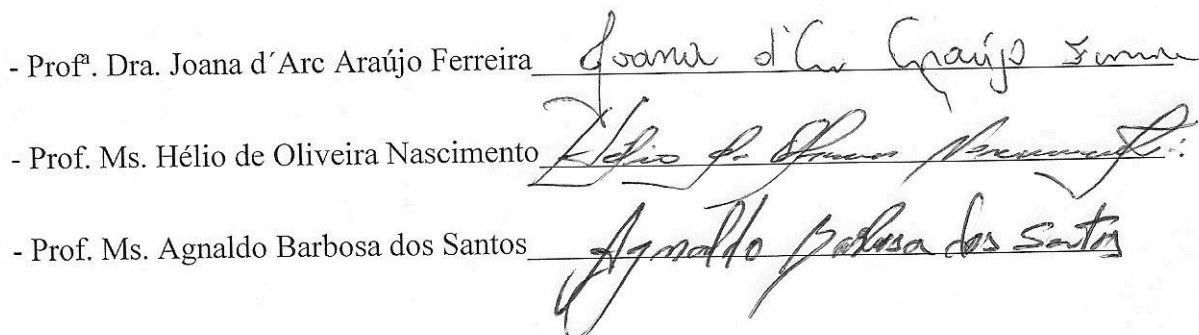 - Profª. Dra. Joana d´Arc Araújo Ferreira Joana d'Arc Araújo
- Prof. Ms. Hélio de Oliveira Nascimento Hélio de Oliveira Nascimento
- Prof. Ms. Agnaldo Barbosa dos Santos Agnaldo Barbosa dos Santos